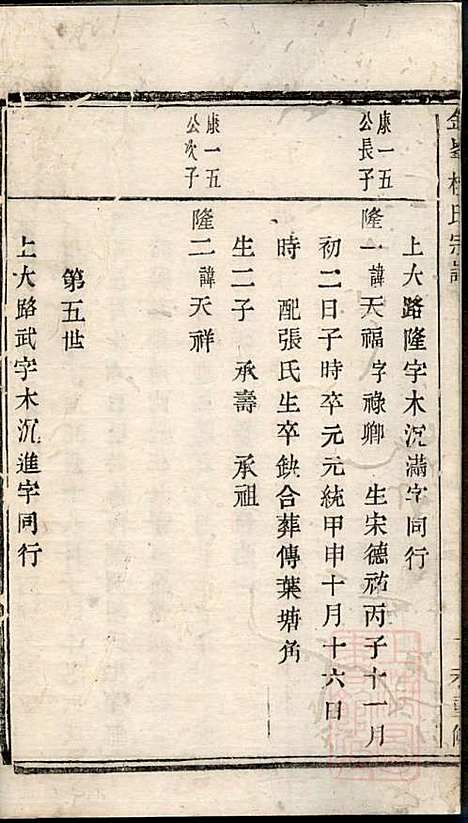 上大路隆字木沉滿字同行
康一五公長子
隆一諱天福字祿卿 生宋德祐丙子十一月
初二日子時卒元元統甲申十月十六日
時 配張氏生卒鈌合葬傳葉塘角
生二子 承壽 承祖
康一五公次子
隆二諱天祥
第五世
上大路武字木沉進字同行